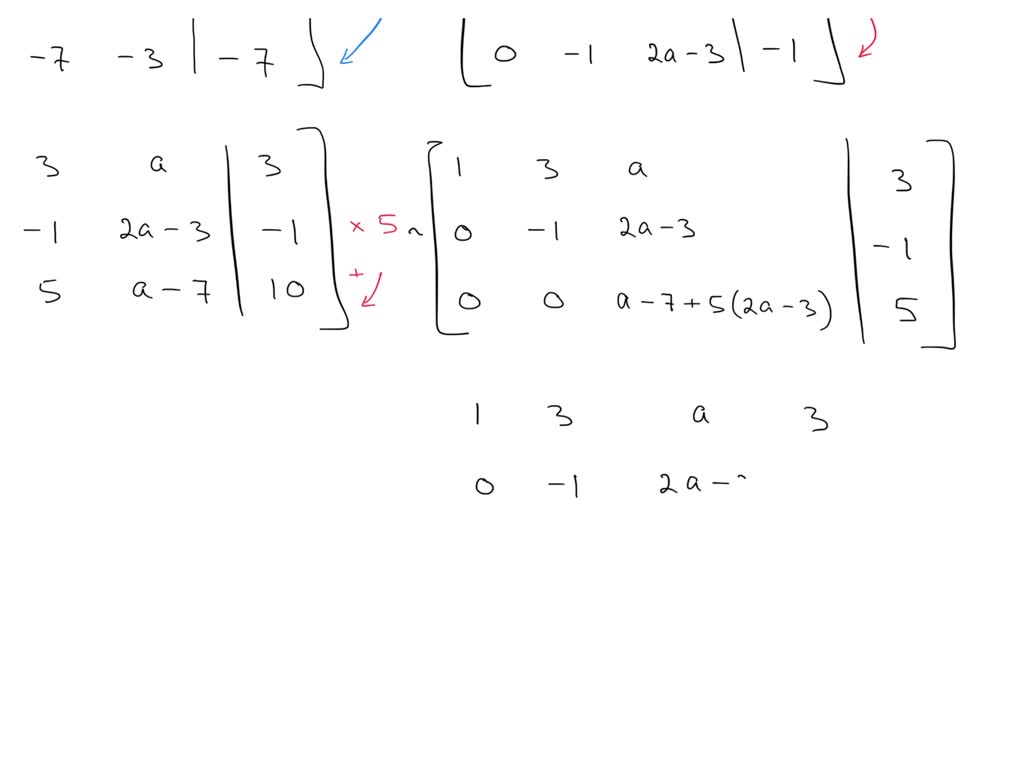 -7 -3 | -7 ] [ 0 -1 2a-3 | -1 ]
3 a | 3 ] [ 1 3 a | 3 ]
-1 2a-3 | -1 ] × 5 ~ [ 0 -1 2a-3 | -1 ]
5 a-7 | 10 ] + [ 0 0 a-7+5(2a-3) | 5 ]
1 3 a 3
0 -1 2a-